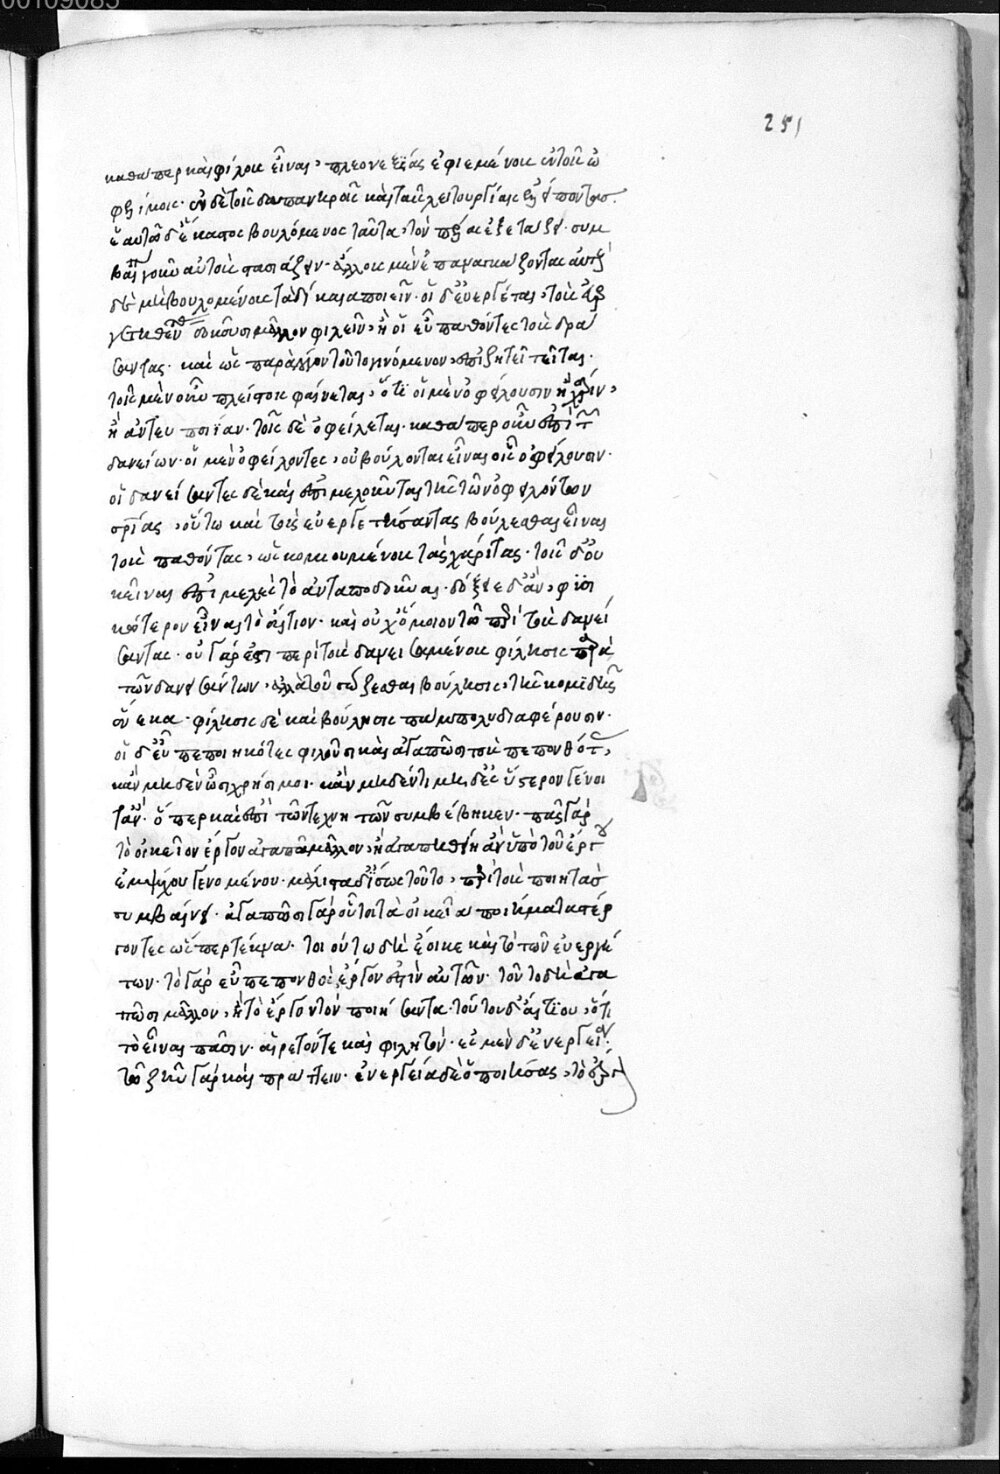 251
καθάπερ καὶ φίλους εἶναι, πλεονεξίας ἐφιεμένους ἐν τοῖς ὠ
φελίμοις· ἐν δὲ τοῖς δαπανηροῖς καὶ ταῖς λειτουργίαις ἐλλείποντας.
ἑαυτῷ δ' ἕκαστος βουλόμενος ταῦτα, τὸν πέλας ἐξετάζει· συμ
βαίνει οὖν αὐτοῖς στασιάζειν· ἀλλήλους μὲν ἐπαναγκάζοντας αὐτοὺς
δὲ μὴ βουλομένους τὰ δίκαια ποιεῖν· οἱ δ' εὐεργέται, τοὺς εὐερ
γετηθέντας δοκοῦσι μᾶλλον φιλεῖν, ἢ οἱ εὖ παθόντες τοὺς δρά
σαντας. καὶ ὡς παρὰ λόγον τοῦτο γινόμενον, ἐπιζητεῖται·
τοῖς μὲν οὖν πλείστοις φαίνεται, ὅτι οἱ μὲν ὀφείλουσιν
τοῖς δὲ ὀφείλεται. καθάπερ οὖν ἐπὶ τῶν
δανείων· οἱ μὲν ὀφείλοντες, βούλονται εἶναι οἷς ὀφείλουσιν·
οἱ δανείσαντες δὲ καὶ ἐπιμελοῦνται τῆς τῶν ὀφειλόντων
σωτηρίας, οὕτω καὶ τοὺς εὐεργετήσαντας βούλεσθαι εἶναι
τοὺς παθόντας, ὡς κομιουμένους τὰς χάριτας. τοῖς δ' οὐκ
εἶναι ἐπιμελὲς τὸ ἀνταποδοῦναι. δόξειε δ' ἂν, φυσι
κώτερον εἶναι τὸ αἴτιον· καὶ οὐχ ὅμοιον τῷ περὶ τοὺς δανεί
σαντας. οὐ γάρ ἐστι περὶ τοὺς δανεισαμένους φίλησις παρὰ
τῶν δανεισάντων, ἀλλὰ τοῦ σώζεσθαι βούλησις, τῆς κομιδῆς
οὕνεκα· φίλησις δὲ καὶ βούλησις πάμπολυ διαφέρουσιν.
οἱ δ' εὖ πεποιηκότες φιλοῦσι καὶ ἀγαπῶσι τοὺς πεπονθότας,
κἂν μηδὲν ὦσι χρήσιμοι. κἂν μηδέν τι μηδ' ἐς ὕστερον γένοι
τ' ἄν. ὅπερ καὶ ἐπὶ τῶν τεχνητῶν συμβέβηκεν. πᾶς γὰρ
τὸ οἰκεῖον ἔργον ἀγαπᾷ μᾶλλον, ἢ ἀγαπηθείη ἂν ὑπὸ τοῦ ἔργου
ἐμψύχου γενομένου. μάλιστα δ' ἴσως τοῦτο, περὶ τοὺς ποιητὰς
συμβαίνει. ἀγαπῶσι γὰρ οὗτοι τὰ οἰκεῖα ποιήματα στέρ
γοντες ὥσπερ τέκνα. τοιούτω δὴ ἔοικε καὶ τὸ τῶν εὐεργε
των. τὸ γὰρ εὖ πεπονθὸς ἔργον ἐστὶν αὐτῶν. τοῦτο δὴ ἀγα
πῶσι μᾶλλον, ἢ τὸ ἔργον τὸν ποιήσαντα. τούτου δ' αἴτιον, ὅτι
τὸ εἶναι πᾶσιν· αἱρετόν τε καὶ φιλητόν. ἐσμὲν δ' ἐνεργείᾳ.
τῷ ζῆν γὰρ καὶ πράττειν. ἐνεργείᾳ δὲ ὁ ποιήσας, τὸ ἔργον